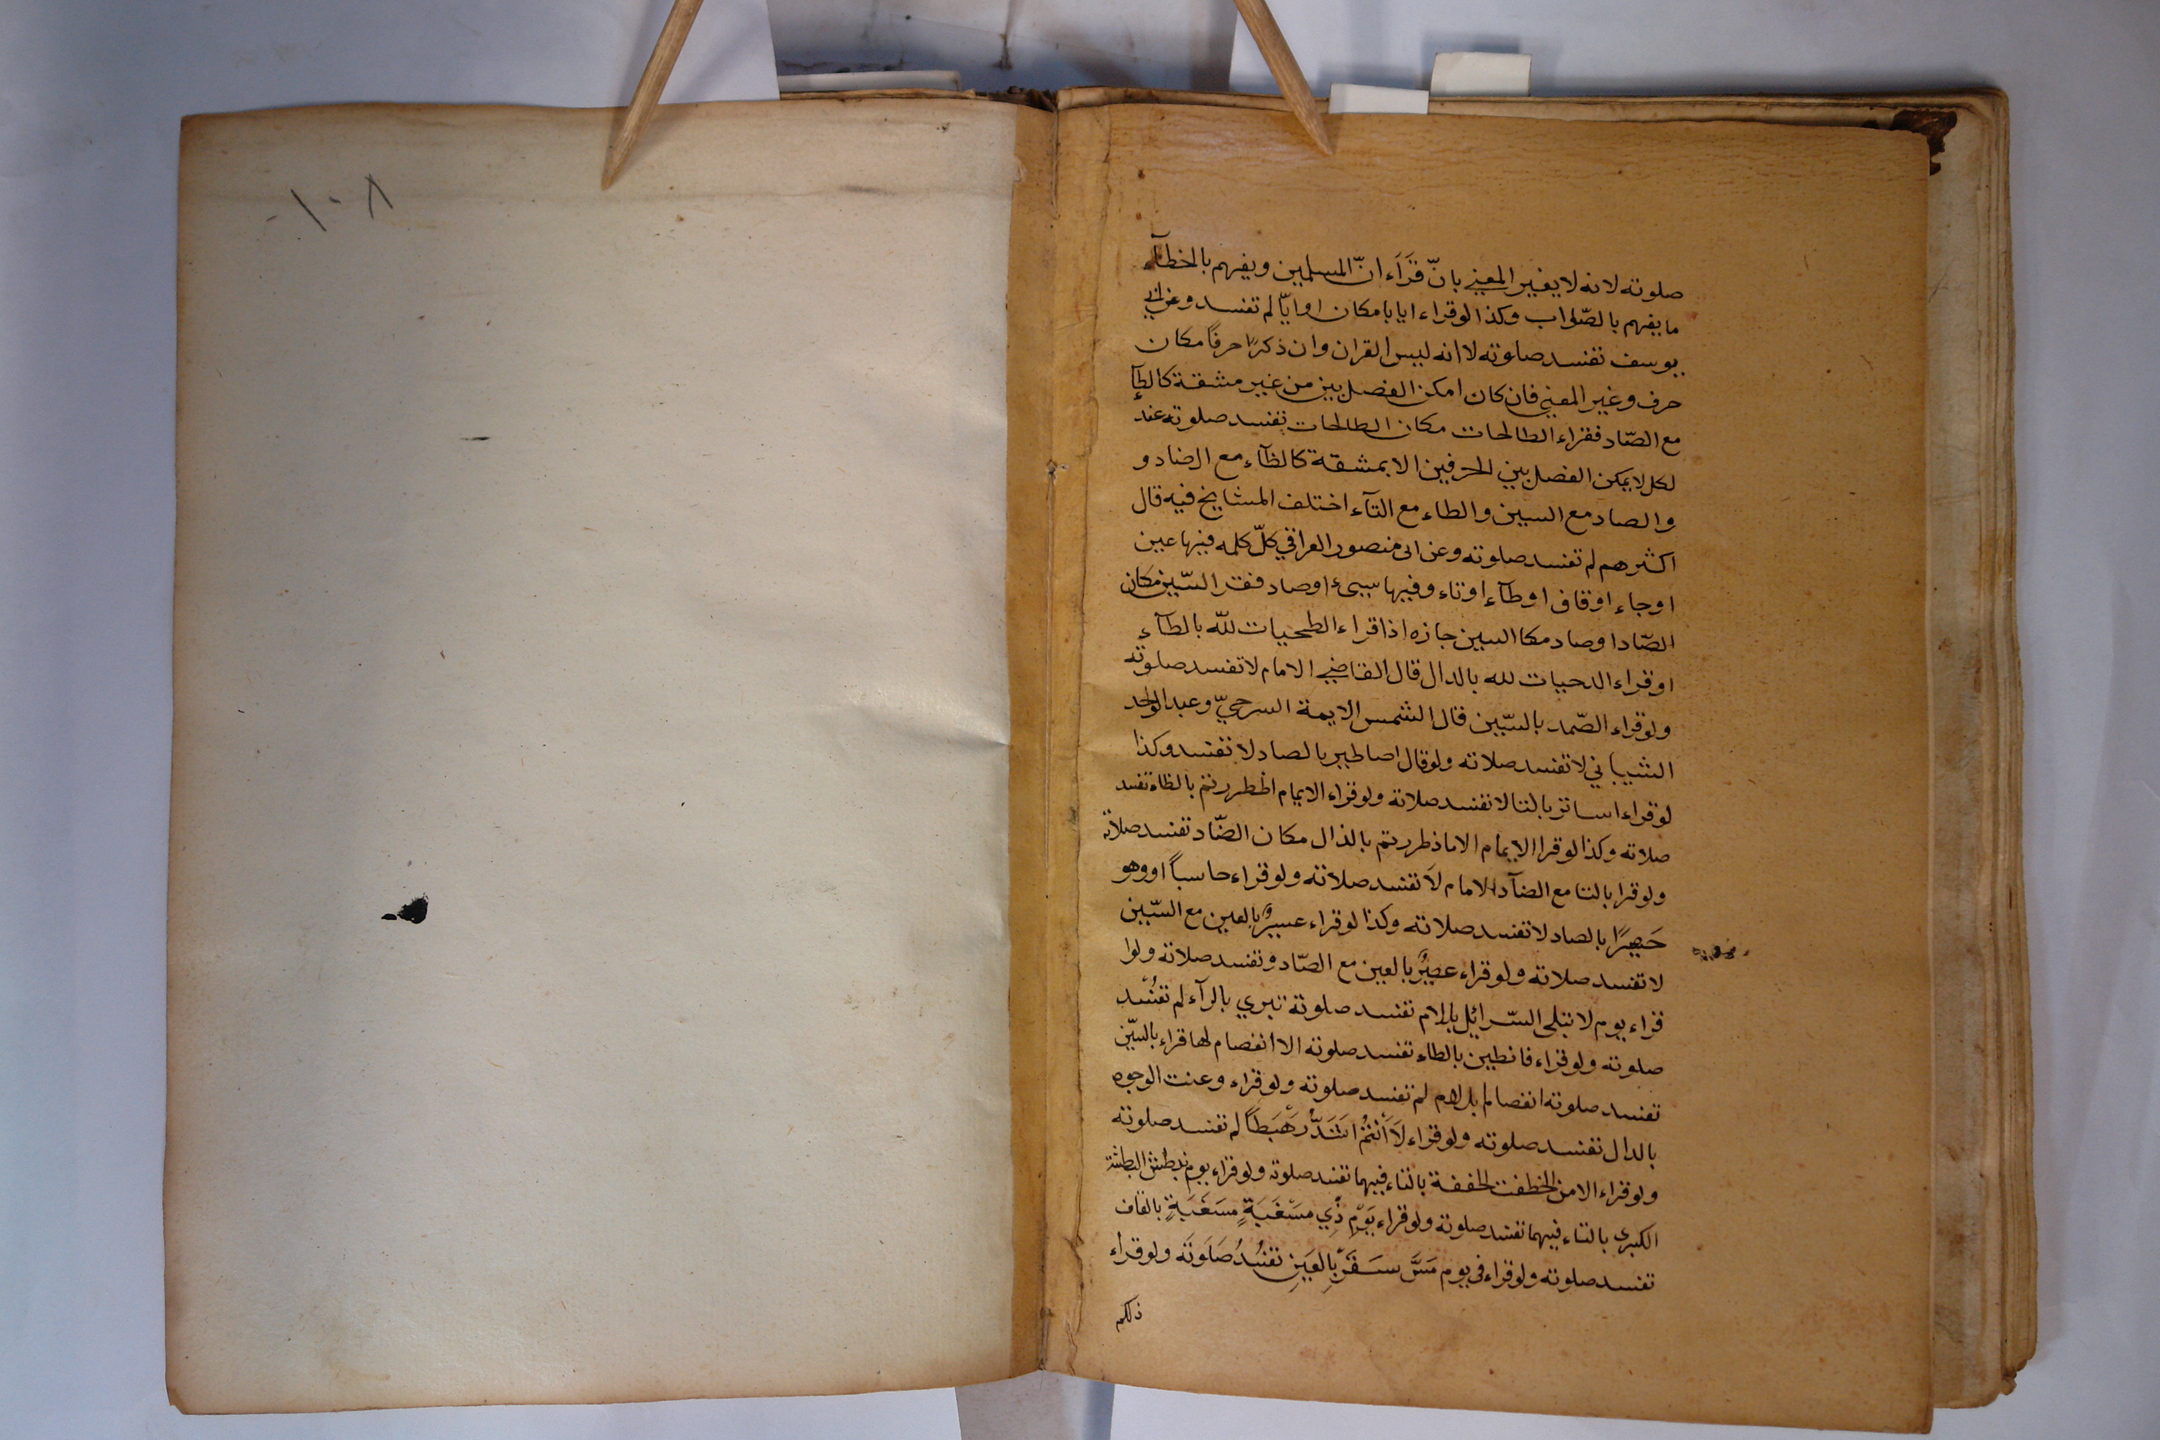 صلوته لانه لا يغير المعنى بانّ قَرَاَء انّ المسلمين ويفهم بالخطاء
ما يفهم بالصّواب وكذا لو قراء ايابا مكان اوايّا لم تفسد وعن ابى
يوسف تفسد صلوته لاانه ليس القران وان ذكر حرفًا مكان
حرف وغير المعنى فان كان امكن الفصل بين من غير مشقة كالطآ
مع الصّاد فقراء الطالحات مكان الطالحات تفسد صلوته عند
لكل لا يمكن الفصل بين الحرفين الا بمشقة كالظآء مع الضاد و
والصاد مع السين والطاء مع التآء اختلف المشايخ فيه قال
اكثرهم لم تفسد صلوته وعن ابى منصور العراقي كلّ كلمه فيها عين
اوجاء اوقاف اوطآء اوتاء وفيها سيى اوصاد فقر السّين مكان
الصّاد اوصاد مكا السين جازه اذا قراء الطحيات للّه بالطآء
او قراء الدحيات لله بالدال قال القاضي الامام لا تفسد صلوته
ولو قراء الصّمد بالسّين قال الشمس الايمة السرحيّ وعبد الواحد
الشيباني لا تفسد صلاته ولو قال اصاطير بالصاد لا تفسد وكذا
لو قراء اساتر بالتا لا تفسد صلاته ولو قراء الايمام اظطررتم بالظاء تفسد
صلاته وكذا لو قرا الايمام الاماذطررتم بالذال مكان الضّاد تفسد صلاته
ولو قرا بالتا مع الضآد الامام لا تفسد صلاته ولو قراء حاسباً اووهو
حَصِيرًا بالصاد لا تفسد صلاته وكذا لو قراء عسيرٌ بالعين مع السّين
لا تفسد صلاته ولو قراء عصيرٌ بالعين مع الصّاد وتفسد صلاته ولوا
قراء يوم لا تبلى السّرائل بالام تفسد صلوته تبري بالرآء لم تفسُد
صلوته ولو قراء قانطين بالطاء تفسد صلوته الا انفصام لها قراء بالسّين
تفسد صلوته انفصالم بل لام لم تفسد صلوته ولو قراء وعنت الوجوه
بالدال تفسد صلوته ولو قراء لَاَأَنْتُمْ اَشَدُّ رَهْبَطًا لم تفسد صلوته
ولو قراء الا من الخطفت الخففة بالتاء فيهما تفسد صلوته ولو قراء يوم نبطش البطشة
الكبرى بالتاء فيهما تفسد صلوته ولو قراء يَوْمٍ ذِي مَسْغَبَةٍ مَسَغَبَةٍ بالقاف
تفسد صلوته ولو قراء فى يوم مَسَّ سَقَرَ بِالعَيَنِ تفسُدُ صَلَوتَه ولو قراء
ذلكم
١٠٨